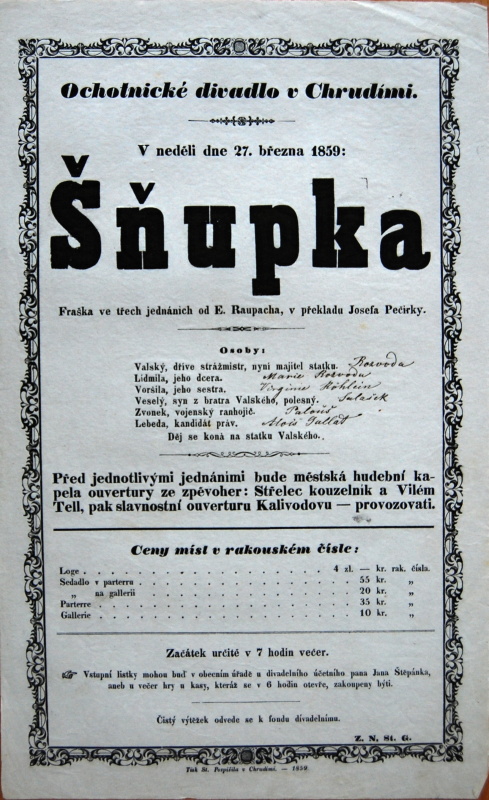 Ochotnické divadlo v Chrudími.
V neděli dne 27. března 1859:
Šňupka
Fraška ve třech jednáních od E. Raupacha, v překladu Josefa Pečirky.
Osoby:
Valský, dříve strážmistr, nyní majitel statku. Rozvoda
Lidmila, jeho dcera. Marie Rozvoda
Voršila, jeho sestra. Virginie Köhlein
Veselý, syn z bratra Valského, polesný.
Zvonek, vojenský ranhojič. Palouš
Lebeda, kandidát práv. Alois Gallat
Děj se koná na statku Valského.
Před jednotlivými jednáními bude městská hudební ka-
pela ouvertury ze zpěvoher: Střelec kouzelník a Vilém
Tell, pak slavnostní ouverturu Kalivodovu — provozovati.
Ceny míst v rakouském čísle:
Loge . . . . . . . . . . . . . . . 4 zl. — kr. rak. čísla.
Sedadlo v parterru . . . . . . . . . . . . 55 kr. „
„ na gallerii . . . . . . . . . . . . 20 kr. „
Parterre . . . . . . . . . . . . . . . 35 kr. „
Gallerie . . . . . . . . . . . . . . . 10 kr. „
Začátek určitě v 7 hodin večer.
☞ Vstupní lístky mohou buď v obecním úřadě u divadelního účetního pana Jana Štěpánka,
aneb u večer hry u kasy, kteráz se v 6 hodin otevře, zakoupeny býti.
Čistý výtěžek odvede se k fondu divadelnímu.
Z. N. St. G.
Tisk St. Pospíšila v Chrudimi. — 1859.